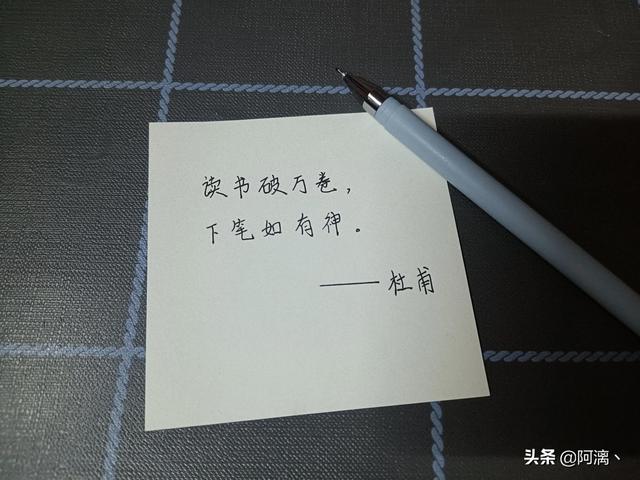 读书破万卷，
下笔如有神。
——杜甫
头条 @阿漓丶